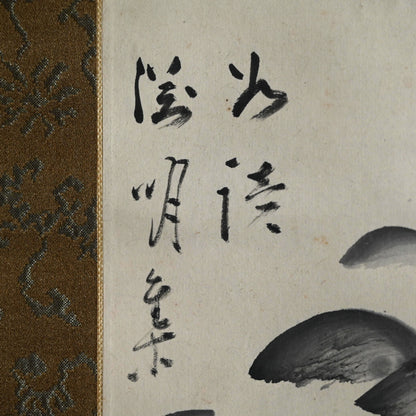 如讀
淵明集